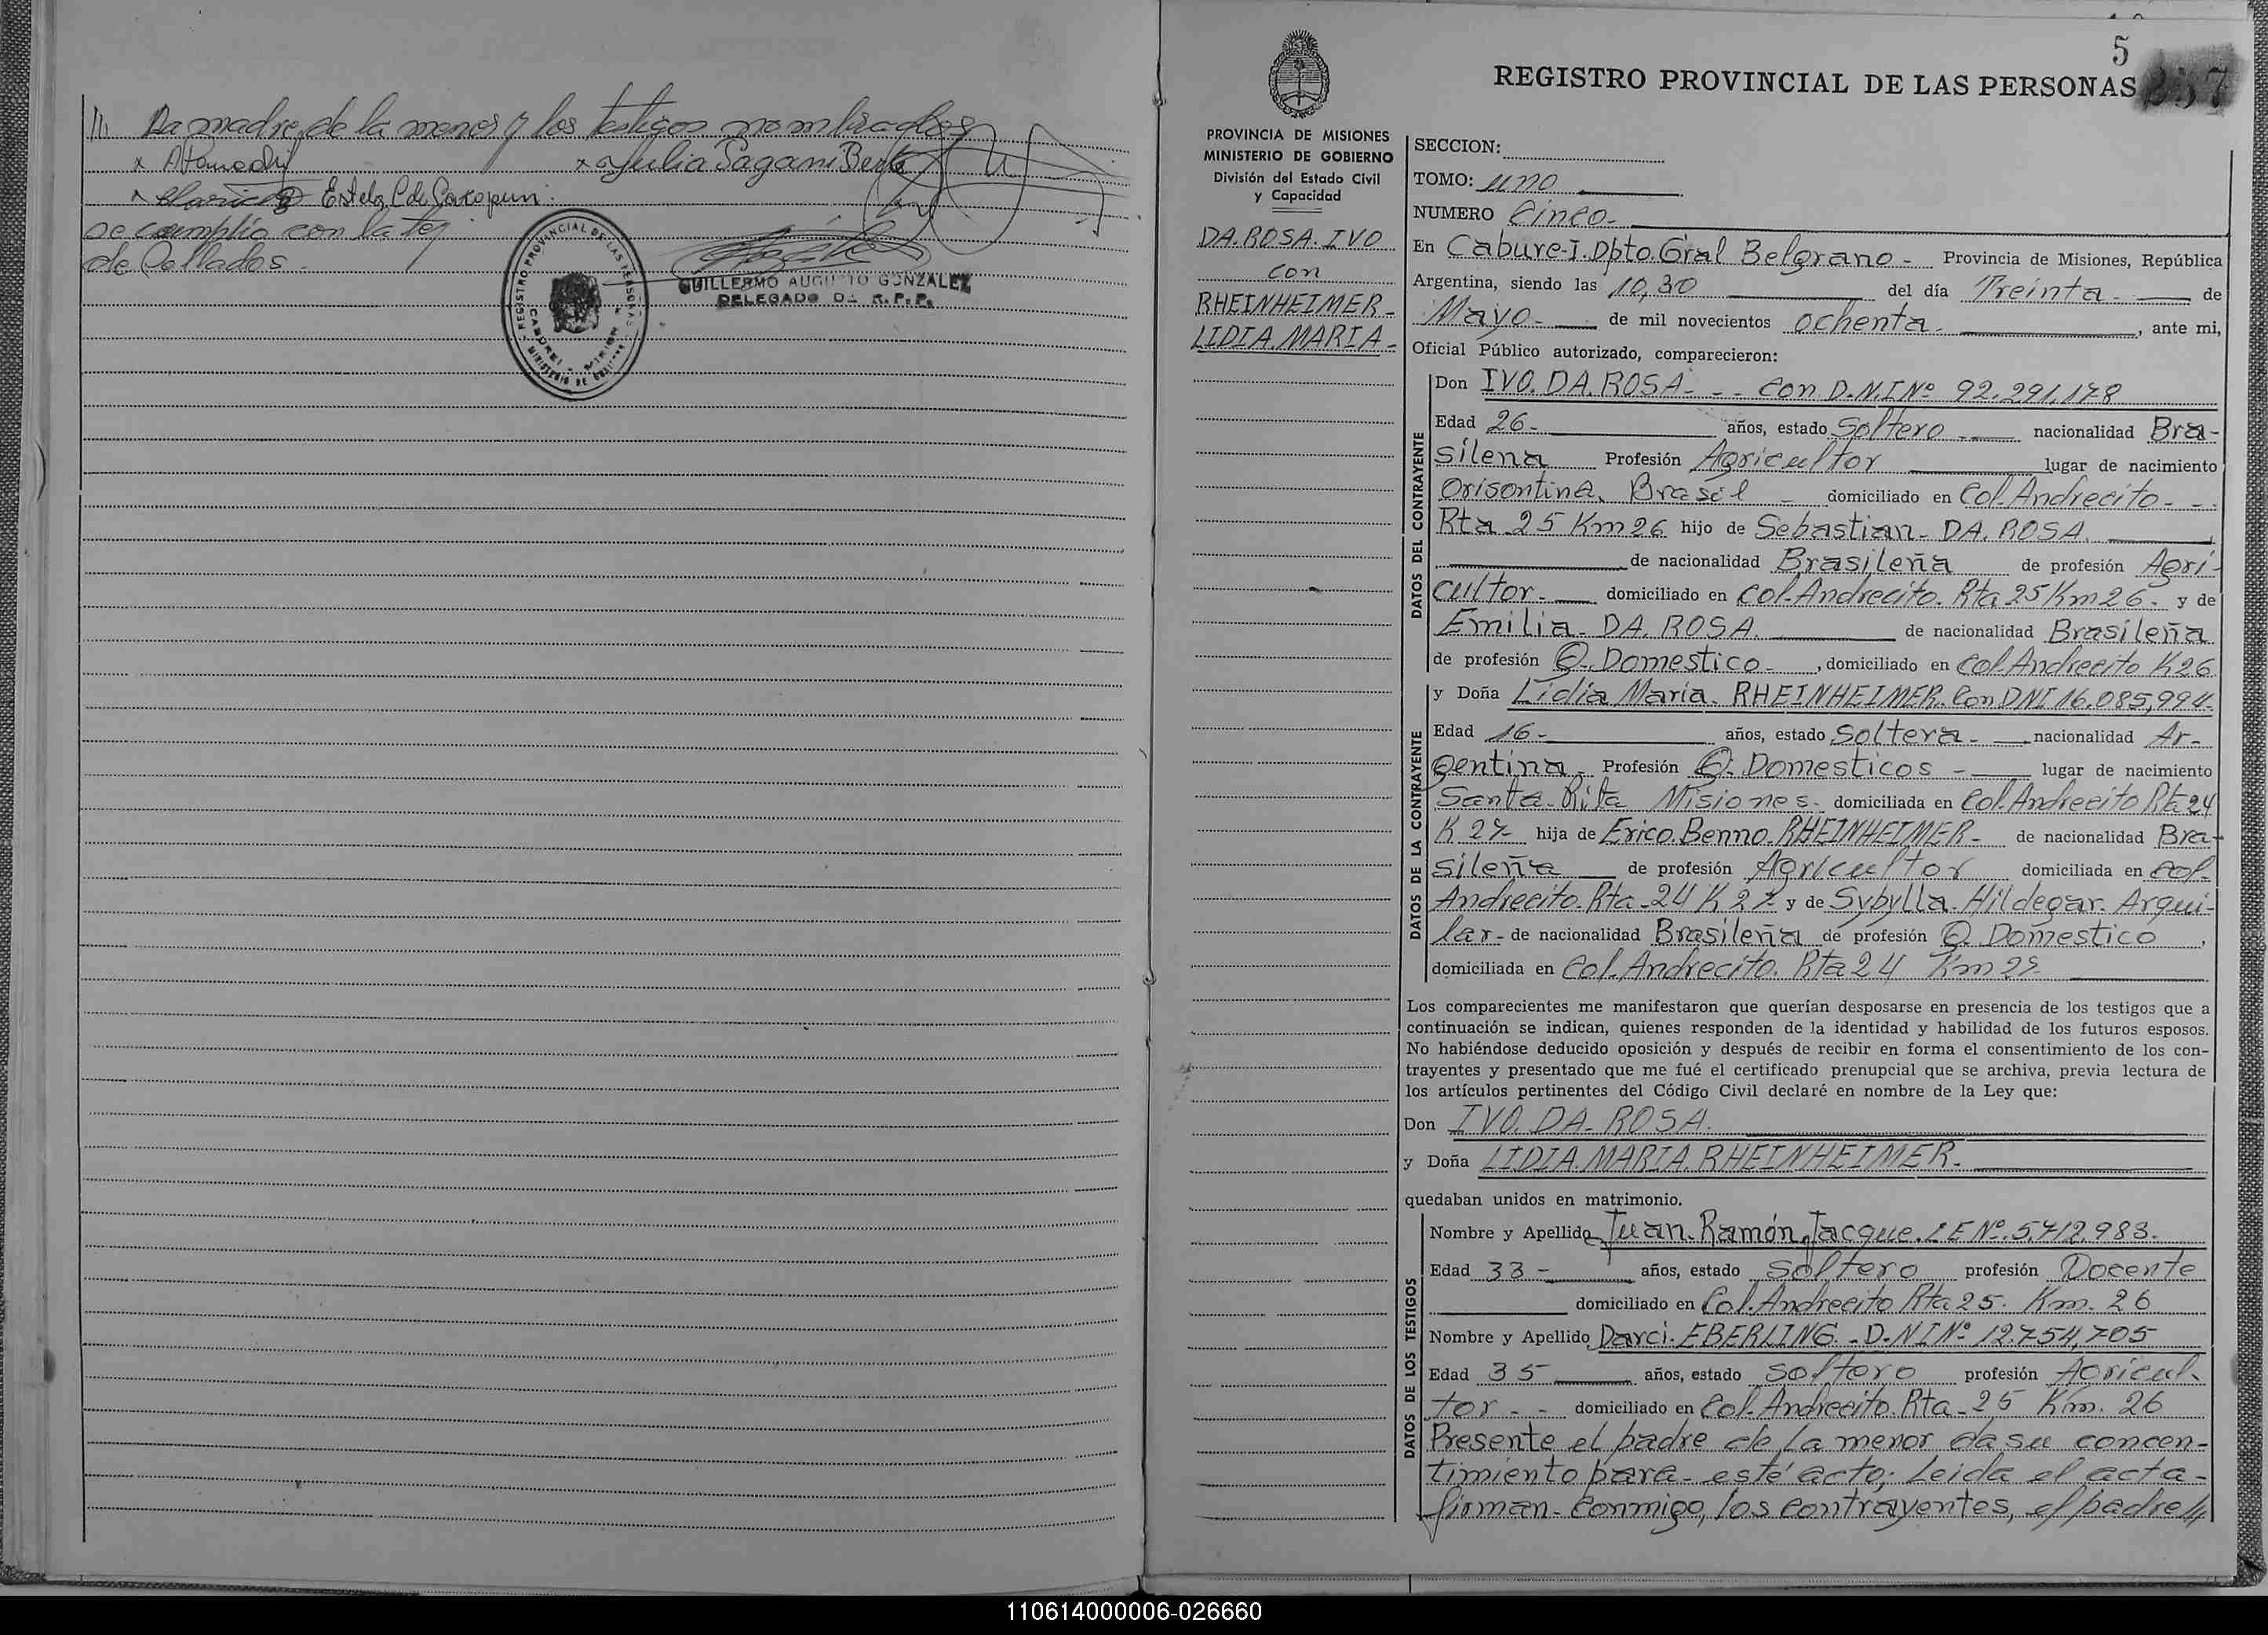 //. La madre de la menor y los testigos nombrados
x Julia Pagani Berta
Estela C de
se cumplio con la ley
de Sellados.
REGISTRO PROVINCIAL DE LAS PERSONAS
GUILLERMO AUGUSTO GONZALEZ
DELEGADO DE R.P.P.
5
REGISTRO PROVINCIAL DE LAS PERSONAS
257
PROVINCIA DE MISIONES
MINISTERIO DE GOBIERNO
División del Estado Civil
y Capacidad
DA. ROSA. IVO
con
RHEINHEIMER-
LIDIA. MARIA-
SECCION:
TOMO: uno
NUMERO Cinco-
En Cabure-I. Dpto. Gral Belgrano - Provincia de Misiones, República
Argentina, siendo las 10,30 del día Treinta- de
Mayo- de mil novecientos ochenta- , ante mi,
Oficial Público autorizado, comparecieron:
DATOS DEL CONTRAYENTE
Don IVO. DA. ROSA- - - con D.N.I Nº 92.291.178
Edad 26- años, estado Soltero - nacionalidad Bra-
silena Profesión Agricultor lugar de nacimiento
Orisontina. Brasil - domiciliado en Col. Andrecito- - -
Rta 25 Km 26 hijo de Sebastian- DA. ROSA.
de nacionalidad Brasileña de profesión Agri-
cultor- domiciliado en Col. Andrecito. Rta 25 Km 26- y de
Emilia- DA. ROSA. de nacionalidad Brasileña
de profesión Q. Domestico- , domiciliado en Col. Andrecito K26
DATOS DE LA CONTRAYENTE
y Doña Lidia Maria. RHEINHEIMER. Con DNI 16.085,994-
Edad 16- años, estado Soltera- nacionalidad Ar-
gentina- Profesión Q. Domesticos - lugar de nacimiento
Santa-Rita Misiones- domiciliada en Col. Andrecito Rta 24
K 27 hija de Erico. Benno. RHEINHEIMER- de nacionalidad Bra-
sileña de profesión Agricultor domiciliada en Col.
Andrecito. Rta-24 K 27 y de Sybylla. Hildegar. Arqui-
lar- de nacionalidad Brasileña de profesión Q. Domestico ,
domiciliada en Col. Andrecito. Rta 24 Km 27
Los comparecientes me manifestaron que querían desposarse en presencia de los testigos que a
continuación se indican, quienes responden de la identidad y habilidad de los futuros esposos.
No habiéndose deducido oposición y después de recibir en forma el consentimiento de los con-
trayentes y presentado que me fué el certificado prenupcial que se archiva, previa lectura de
los artículos pertinentes del Código Civil declaré en nombre de la Ley que:
Don IVO. DA- ROSA.
y Doña LIDIA. MARIA. RHEINHEIMER.
quedaban unidos en matrimonio.
DATOS DE LOS TESTIGOS
Nombre y Apellido Juan. Ramón. Jacque. L E Nº. 5.712.983.
Edad 33 - años, estado Soltero profesión Docente
domiciliado en Col. Andrecito Rta 25. Km. 26
Nombre y Apellido Darci. EBERLING. -D-NI Nº 12.754,705
Edad 35 años, estado soltero profesión Agricul-
tor - - domiciliado en Col. Andrecito. Rta- 25 Km. 26
Presente el padre de la menor da su concen-
timiento para- esté acto; Leida el acta-
firman- conmigo, los contrayentes, el padre //
110614000006-026660